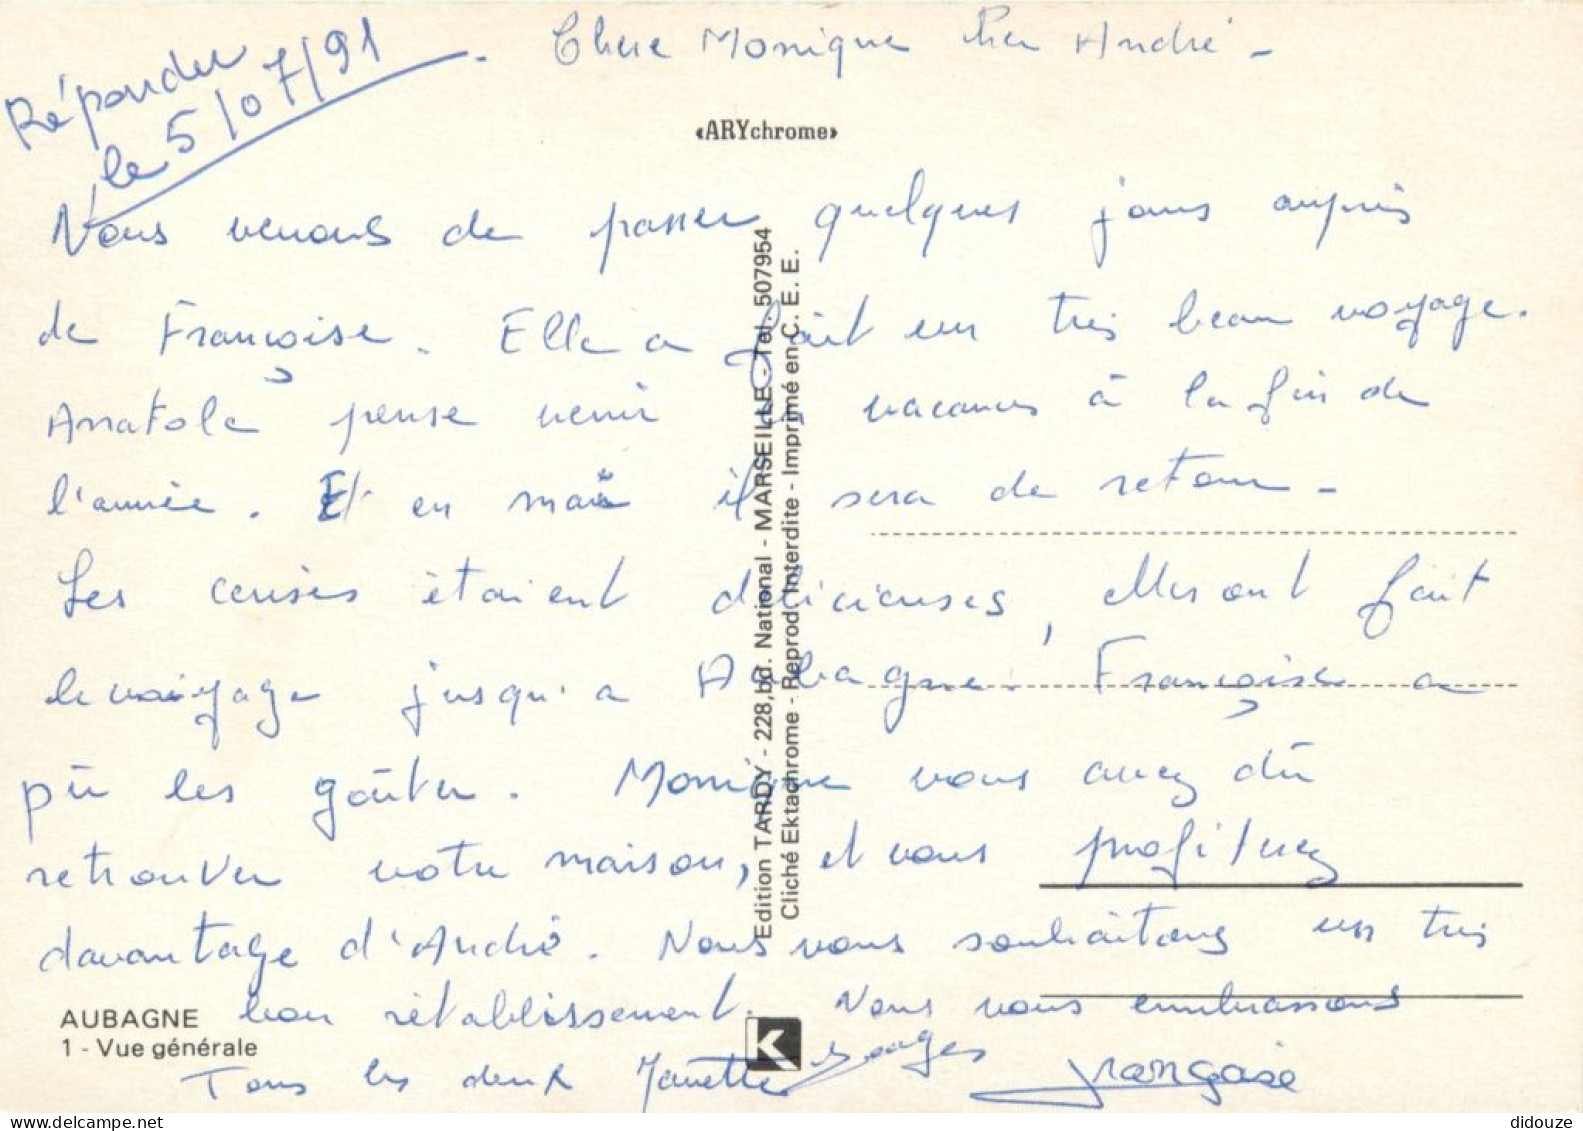 Répondu
le 5/07/91
Chere Monique Cher André -
«ARYchrome»
Nous venons de passer quelques jours auprès
de Françoise. Elle a fait un très beau voyage.
Anatole pense venir en vacances à la fin de
l'année. Et en mai il sera de retour -
Les cerises étaient délicieuses, elles ont fait
le voyage jusqu'a Aubagne. Françoise a
pû les goûter. Monique vous avez dû
retrouver votre maison, et vous profiterez
davantage d'André. Nous vous souhaitons un très
bon rétablissement. Nous vous embrassons
Tous les deux Ginette Georges Françoise
AUBAGNE
1 - Vue générale
Edition TARDY - 228, bd. National - MARSEILLE - Tel. 507954
Cliché Ektachrome - Reprod. Interdite - Imprimé en C. E. E.
K
didouze